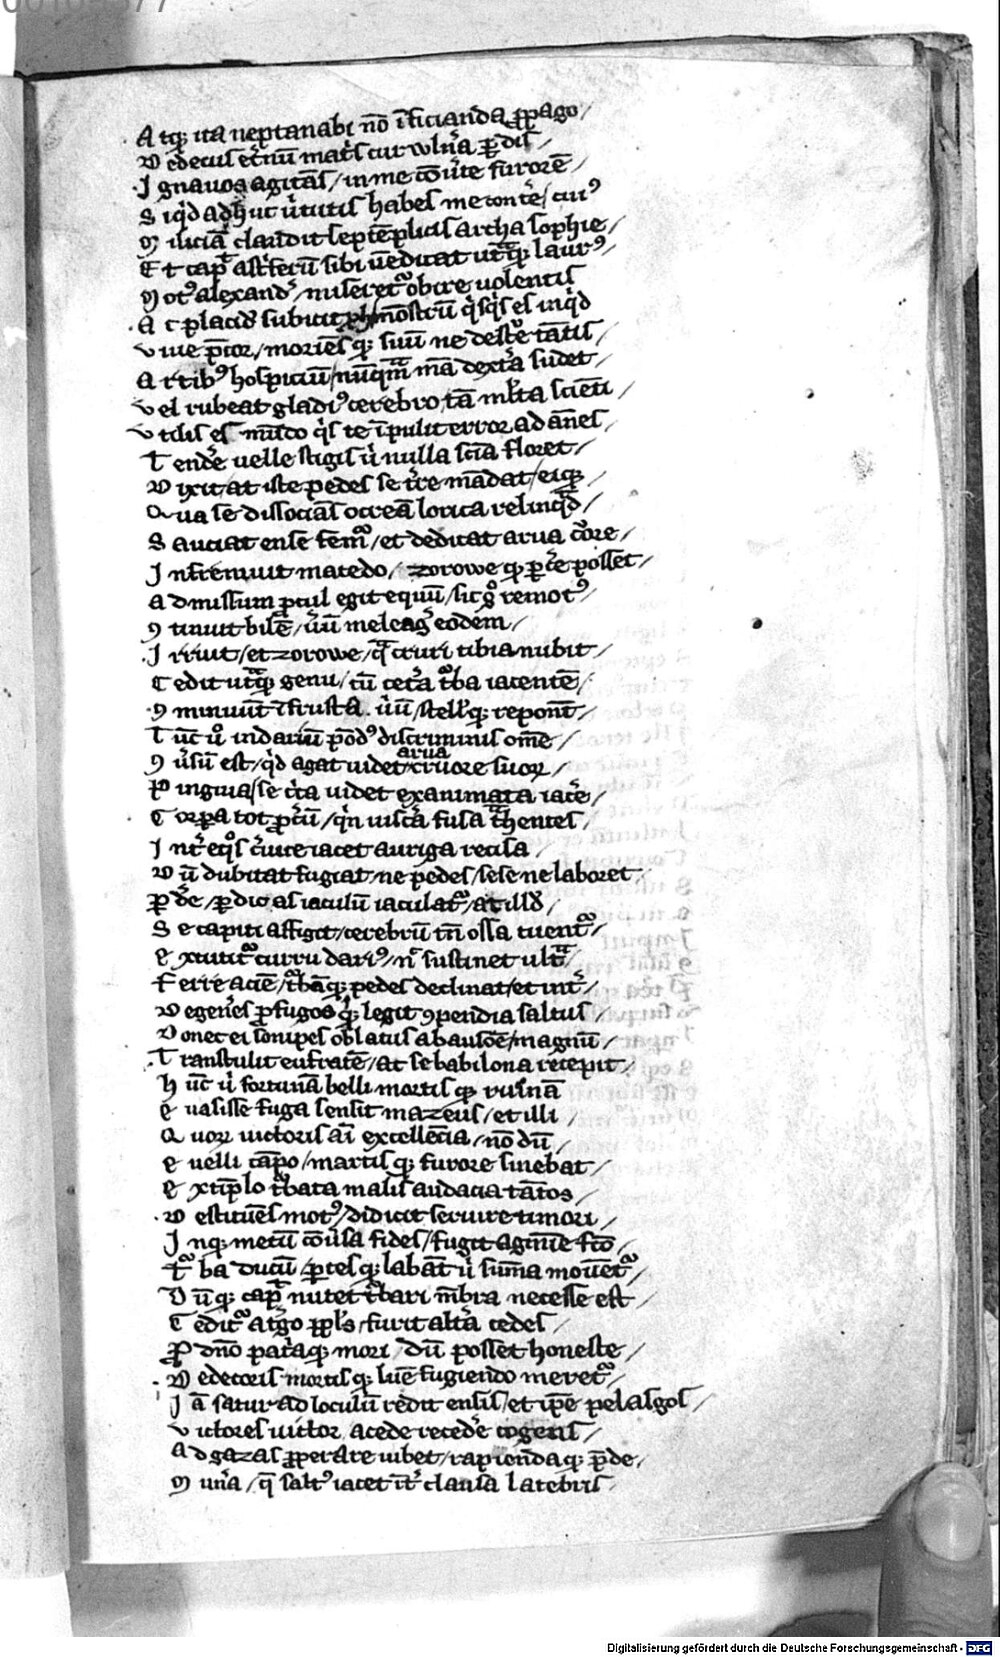 A tq; ita neptanabi nō īficianda ꝓpago /
D edecus et̄nū mat̾s cur vuln̾a ꝑdis /
I gnauos agitās / in me cōu̾te furorē /
S iq̇d adhuc u̾tutis habes me conte̾ / cui9
M iliciā claudit septēplicis archa sophie /
E t cap̄ astr̾ferū sibi uēdicat ut̾q; laur9 /
M ot9 alexand̾ / miseret̾ obire uolentis
A t placid9 subicit mōstrū q̇sq̇s es inq̇d
V iue p̄cor / moriēs q; suū ne dest̾e tātis
A rtib9 hospiciū / nūqm̄ mā dext̾a sudet /
V el rubeat gladi9 cerebro tā ml̾ta sciēti /
V tilis es mūdo q̇s te īpulit error ad āneſ /
T ende̾ uelle stigis u̾ nulla sciā floret /
D ixit / at iste pedes se t̾re mādat / eiq; /
Q ua se dissociās ocreā lorica relinq̇d /
S auciat ense fem̾ / et dedicat arua c̾ore /
I nfremuit macedo / zorowe q; ꝑc̾e posset /
A dmissum ꝓcul egit equū / sic g̊ remot9 /
9 tinuit bilē / u̾ū meleag̾ eodem /
I rruit / et zorowe / q̄ cruri tibia nubit /
C edit ut̾q; genu / tū cet̾a t̾ba iacentē /
9 minuūt ī frusta u̾ū / stell'q; reponūt /
T ūc u̾ indariū pōd9 discriminis om̄e /
9 u̾sū est / q̇d agat uidet arua cruore suoꝝ /
P inguia / se c̾ca videt exanimata iace̾ /
C orꝑa tot ꝓc̾ū / q̇n uisc̾a fusa t̾hentes /
I nt̾ eq̊s c̾uice iacet auriga recisa /
D ū dubitat fugiat / ne pedes / sese ne laboret /
ꝑ de̾ / ꝑdicas iaculū iaculat̾ / at illd̾ /
S e capiti affigit / cerebrū tn̄ ossa tuent̾ /
E xcutit̾ curru dari9 / n̾ sustinet ult̾a /
F erre aciē / t̾bāq; pedes declinat / et int̾ /
D egen̾es ꝓfugos q̾q; legit 9pendia saltus /
D onec ei sonipes oblatus ab ausōe / magnū /
T ranstulit eufratē / at se babilona recepit /
H ūc u̾ fortunā belli mortis q; ruinā
E uasisse fuga sensit mazeus / et illi /
Q uoꝝ uictoris ai̅ excellēcia / nō dū /
E uelli cāpo / martis q; furore sinebat /
E xtiplo t̾bata malis audacia tātos /
D estituēs mot9 / didicit seruire timori /
I nq; metū cōu̾sa fides / fugit agmīe fc̄o /
T̾ ba ducū / ꝑtes q; labāt u̾ sūma mouet̾ /
D ū q; cap̄ nutet t̾bari mēbra necesse est /
C edit̾ a t̾go ppl's / furit alt̾a cedes /
P̱ dn̄o pat̾aq; mori / dū posset honeste /
D edecoris mortis q; luē fugiendo meret̾ /
I ā satur ad loculū redit ensis / et ip̄e pelasgos /
V ictores uictor acede recede̾ cogens /
A d gazas ꝓperare iubet / rapiendaq; p̄de /
M un̾a / q̄ salt9 iacet īt̾ clausa latebris /
Digitalisierung gefördert durch die Deutsche Forschungsgemeinschaft - DFG